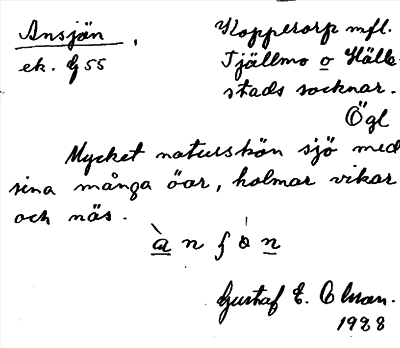 Ansjön,
ek. G 55
Kopperorp mfl.
Tjällmo o Hälle-
stads socknar.
Ögl
Mycket naturskön sjö med
sina många öar, holmar vikar
och näs.
Gustaf E. Olsson.
1928